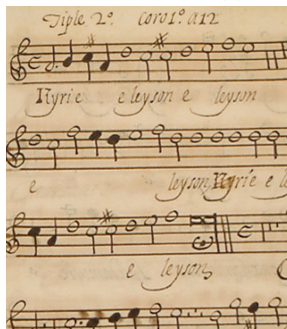 Tiple 2º Coro 1º a 12
Kyrie eleyson e leyson
e leyson, Kyrie e le
e leyson,